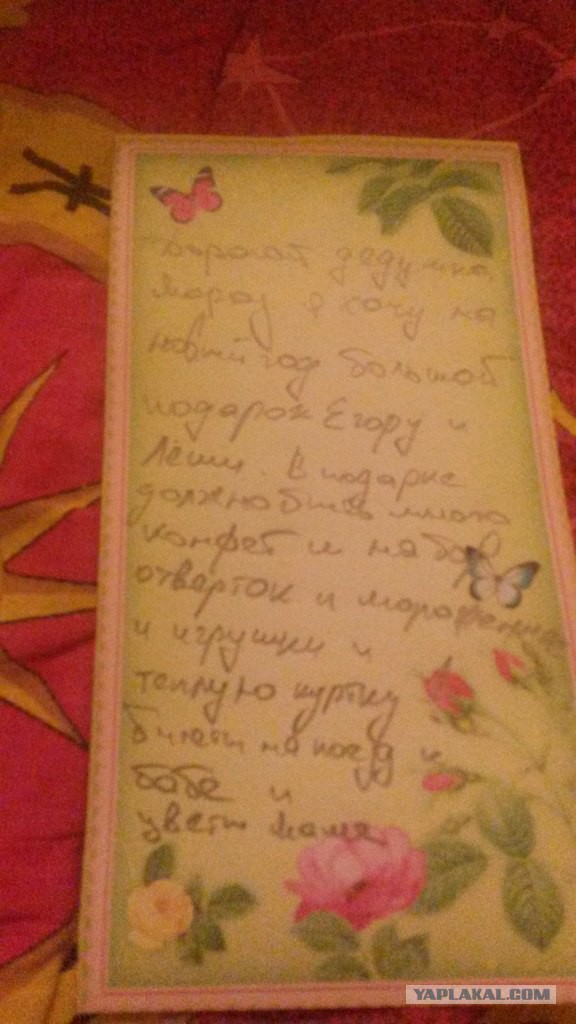 Дорогой дедушка
Мороз я хочу на
новый год большой
подарок Егору и
Леши. В подарке
должно быть много
конфет и набор
отверток и мороженное
и игрушки и
теплую куртку
билеты на поезд и
бабе и
цветы маме
YAPLAKAL.COM